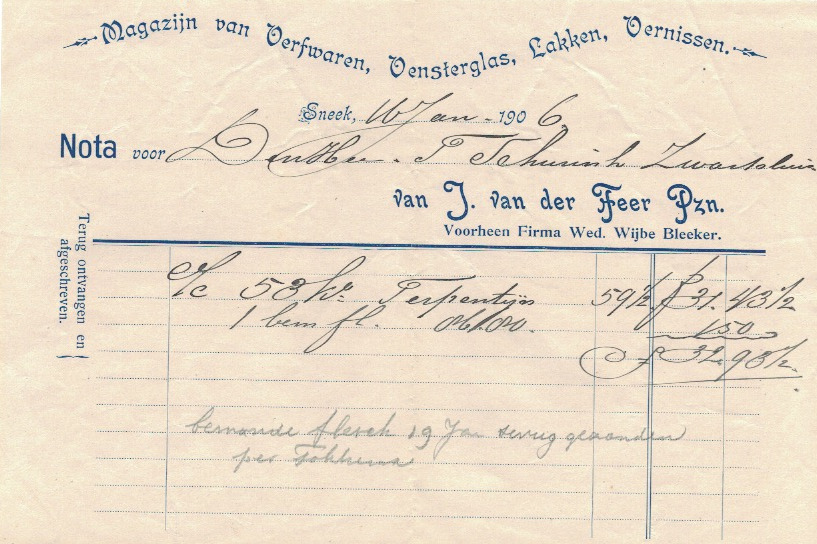 Magazijn van Verfwaren, Vensterglas, Lakken, Vernissen.
Sneek, 16 Jan - 1906.
Nota voor Den Heer. T Zwartsluis
van J. van der Feer Pzn.
Voorheen Firma Wed. Wijbe Bleeker.
Terug ontvangen en
afgeschreven.
53 Ko Terpentijn 59½ f 31.43½
1 bem fl. 1.50
f 32.93½
bemande flesch 19 Jan terug gezonden
per Fokkema